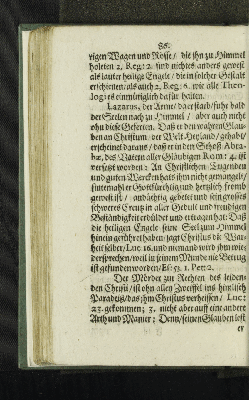 86.
rigen Wagen und Rosse/ die ihn zu Himmel
holeten 2. Reg: 2. sind nichts anders gewest
als lauter heilige Engele/ die in solcher Gestalt
erschienen/ als auch 2. Reg: 6. wie alle Theo-
logi es einmütiglich dafür halten.
Lazarus, der Arme/ da er starb/ fuhr bald
der Seelen nach zu Himmel/ aber auch nicht
ohn diese Geferten. Daß er den wahren Glau-
ben an Christum der Welt Heyland/ gehabt/
erscheinet daraus/ daß er in den Schoß Abra-
hæ, des Vaters aller Gläubigen Rom: 4. ist
versetzt worden: An Christlichen Tugenden
und guten Wercken hats ihm nicht gemangelt/
sintemahl er Gottfürchtig und hertzlich fromb
gewest ist/ andächtig gebetet und sein grosses
schweres Creutz in aller Gedult und freudigen
Beständigkeit erduldet und ertragen hat: Daß
die heiligen Engele seine Seel zum Himmel
hinein geführet haben/ zeugt Christus die War-
heit selber/ Luc. 16. und niemand wird ihm wie-
dersprechen/ weil in seinem Munde nie Betrug
ist gefunden worden/ Es: 53. 1. Pet: 2.
Der Mörder zur Rechten des leiden-
den Christi/ ist ohn allen Zweiffel ins himlisch
Paradeiß/ das ihm Christus verheissen/ Luc:
23. gekommen; 3. nicht aber auff eine andere
Arth und Manier; Denn/ seinen Glauben lest
er